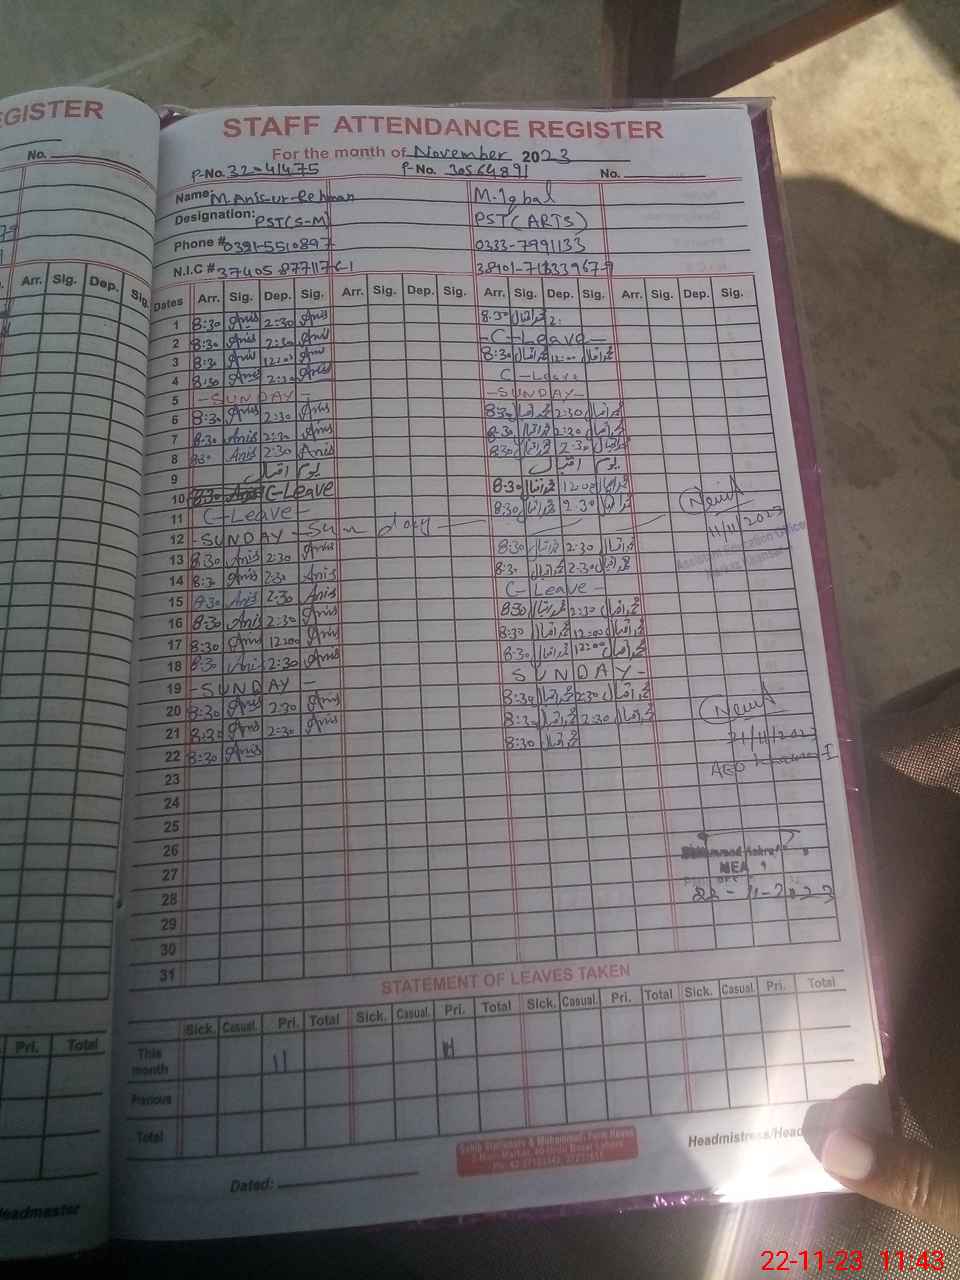 EGISTER
No.
Arr. Sig. Dep. Sig.
Pri. Total
eadmaster
STAFF ATTENDANCE REGISTER
For the month of November 2023
P-No. 32041475 P-No. 30564891 No.
Name: M. Anis-ur-Rehman M. Iqbal
Designation: PST(S-M) PST (ARTS)
Phone # 0391-5510897 0333-7991133
N.I.C #
Dates Arr. Sig. Dep. Sig. Arr. Sig. Dep. Sig. Arr. Sig. Dep. Sig. Arr. Sig. Dep. Sig.
1 8:30 Anis 2:30 Anis 8:30 محمد اقبال 2:
2 8:30 Anis 2:30 Anis -C-Leave-
3 8:30 Anis 12:00 Anis 8:30 محمد اقبال 12:00 محمد اقبال
4 8:30 Anis 2:30 Anis C-Leave
5 -SUNDAY- -SUNDAY-
6 8:30 Anis 2:30 Anis 8:30 محمد اقبال 2:30 محمد اقبال
7 8:30 Anis 2:30 Anis 8:30 محمد اقبال 2:30 محمد اقبال
8 8:30 Anis 2:30 Anis 8:30 محمد اقبال 2:30 محمد اقبال
9 یوم اقبال یوم اقبال
10 8:30 Anis C-Leave 8:30 محمد اقبال 12:00 محمد اقبال
11 C-Leave- 8:30 محمد اقبال 2:30 محمد اقبال
12 -SUNDAY- Sun day
11/11/2023
Assistant Education Officer
13 8:30 Anis 2:30 Anis 8:30 محمد اقبال 2:30 محمد اقبال
14 8:30 Anis 2:30 Anis 8:30 محمد اقبال 2:30 محمد اقبال
15 8:30 Anis 2:30 Anis C-Leave-
16 8:30 Anis 2:30 Anis 8:30 محمد اقبال 2:30 محمد اقبال
17 8:30 Anis 12:00 Anis 8:30 محمد اقبال 12:00 محمد اقبال
18 8:30 Anis 2:30 Anis 8:30 محمد اقبال 12:00 محمد اقبال
19 -SUNDAY- SUNDAY-
20 8:30 Anis 2:30 Anis 8:30 محمد اقبال 2:30 محمد اقبال
21 8:30 Anis 2:30 Anis 8:30 محمد اقبال 2:30 محمد اقبال
22 8:30 Anis 8:30 محمد اقبال
21/11/2023
AEO
23
24
25
26
27
MEA
28
22-11-2023
29
30
31
STATEMENT OF LEAVES TAKEN
Sick. Casual. Pri. Total Sick. Casual. Pri. Total Sick. Casual. Pri. Total Sick. Casual. Pri. Total
This month 11
Previous
Total
Headmistress/Head
Dated:
22-11-23 11:43